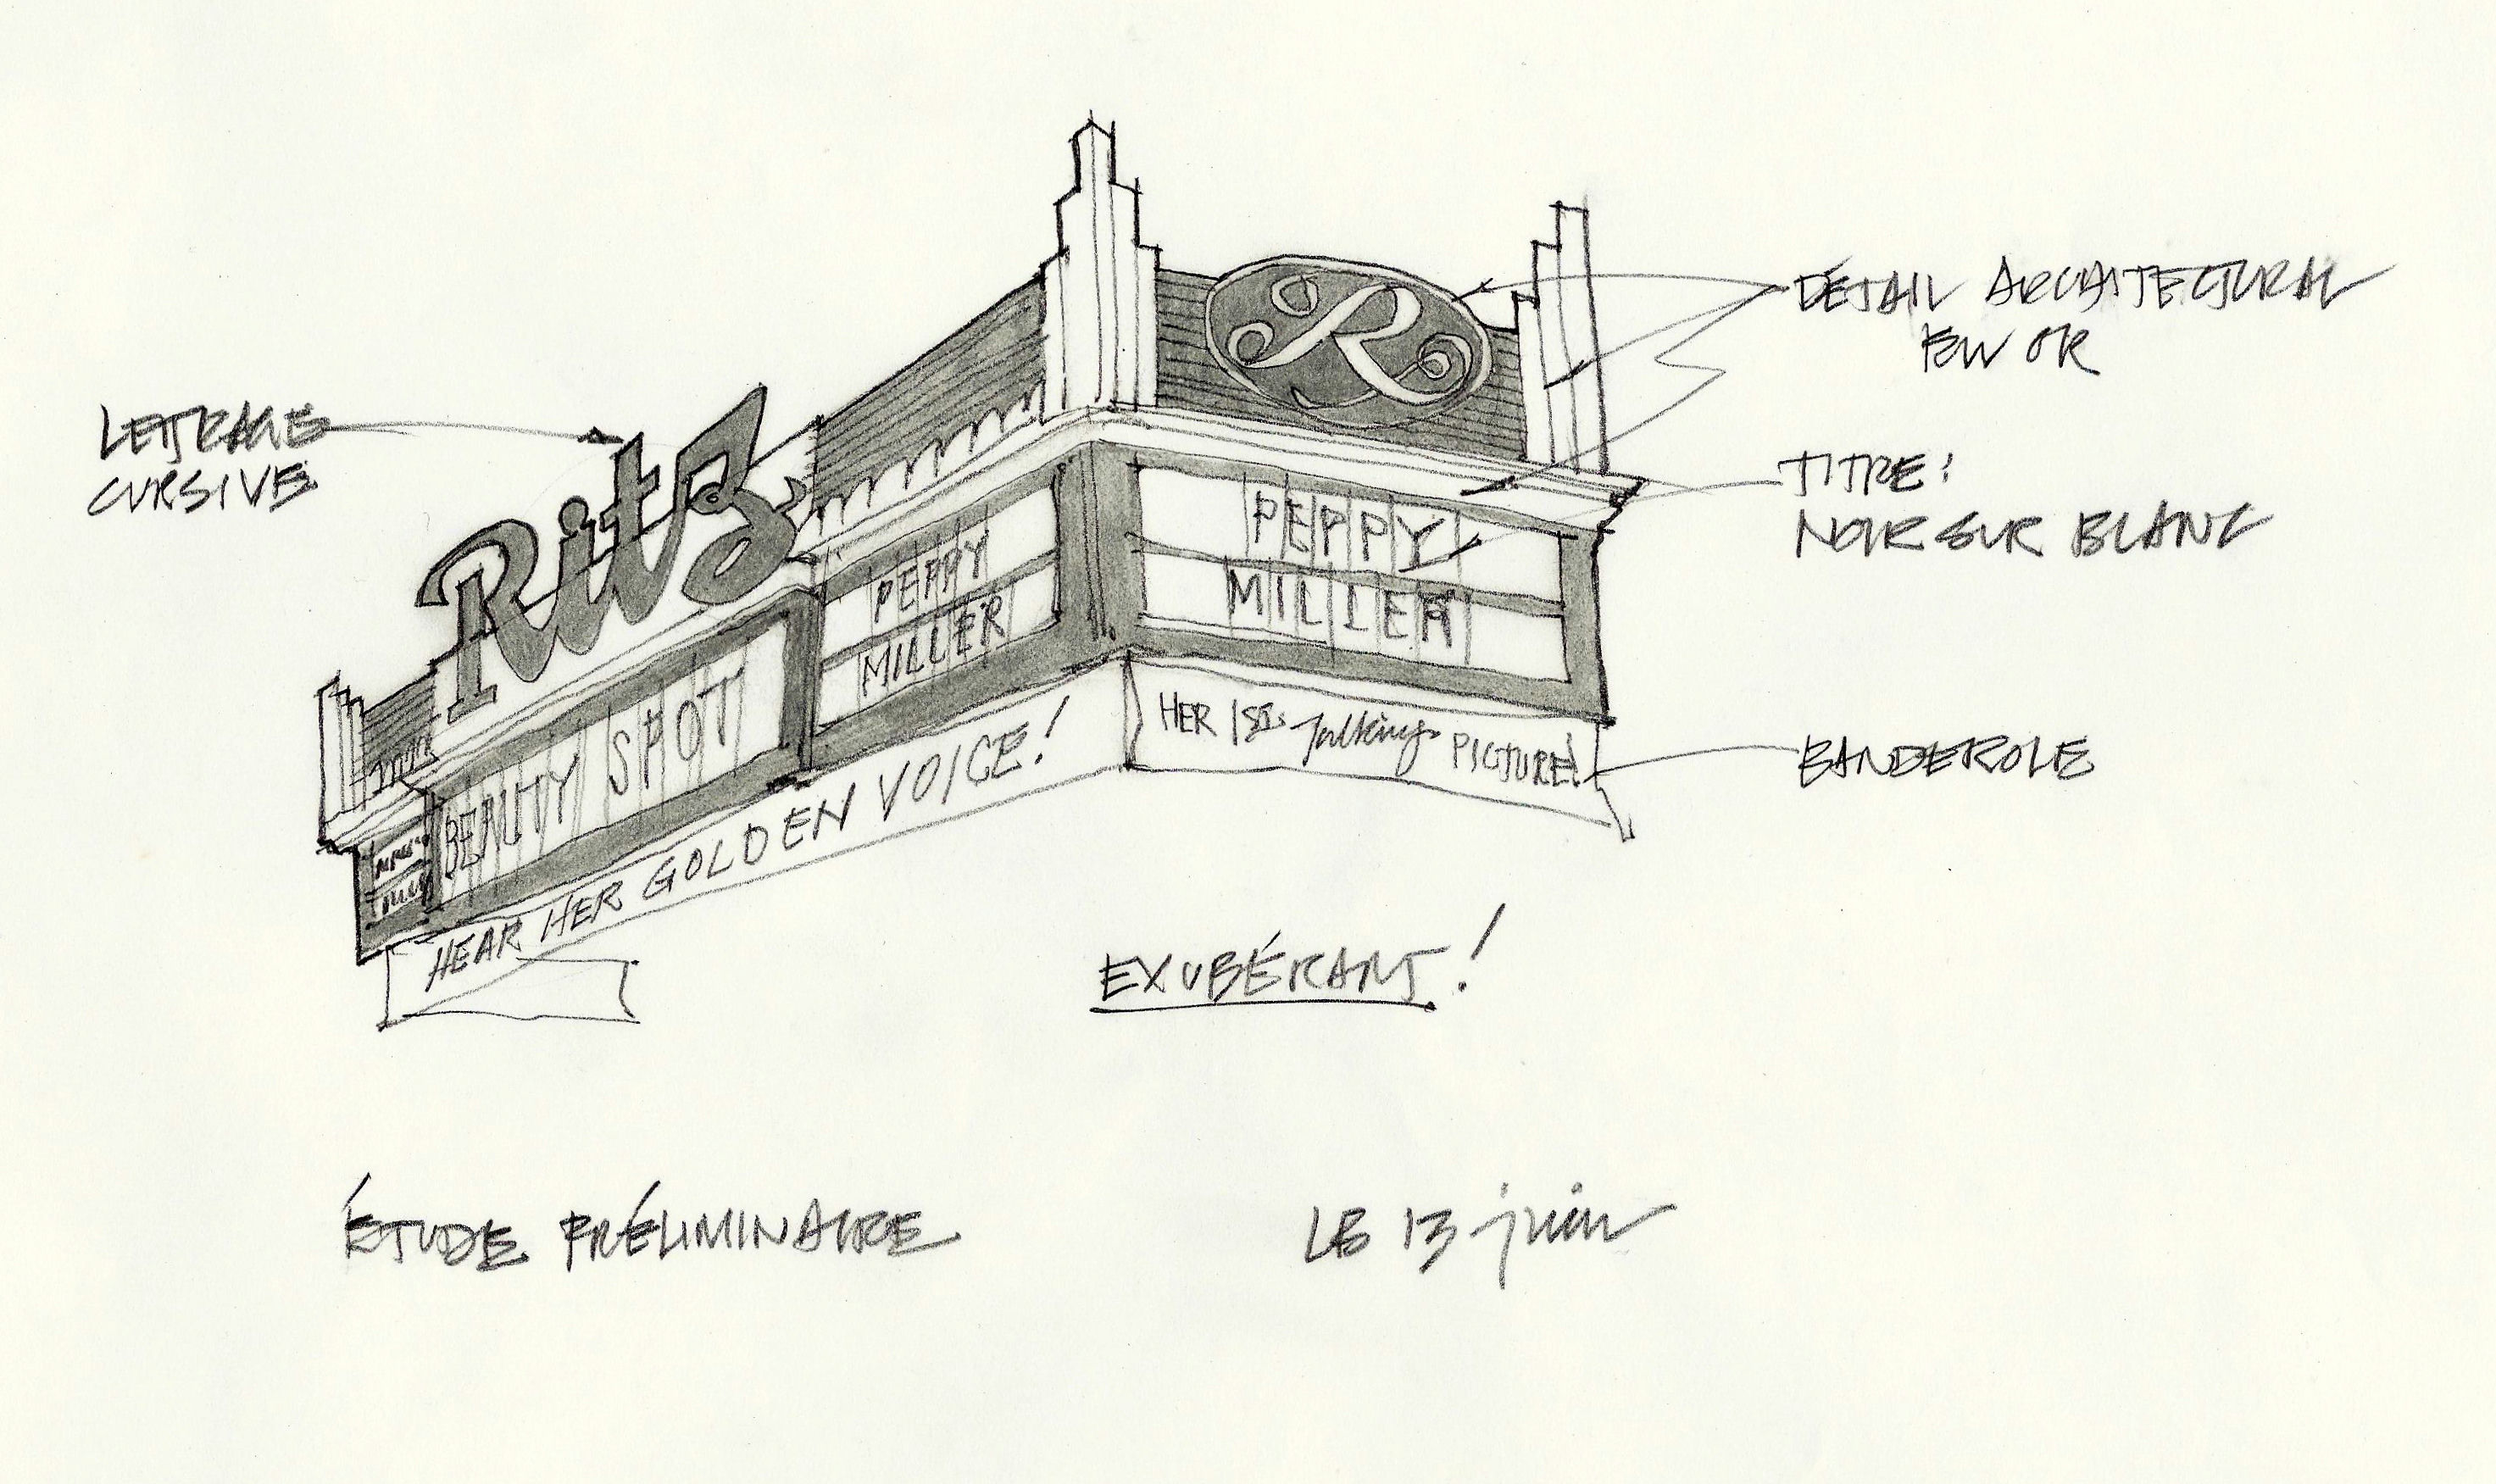 DÉTAIL ARCHITECTURAL
EN OR
LETTRAGE
CURSIVE
R
Ritz
TITRE:
NOIR SUR BLANC
PEPPY
MILLER
PEPPY
MILLER
BEAUTY SPOT
HER 1ST. Talking PICTURE!
BANDEROLE
HEAR HER GOLDEN VOICE!
EXUBÉRANT!
ÉTUDE PRÉLIMINAIRE
LE 13 juin